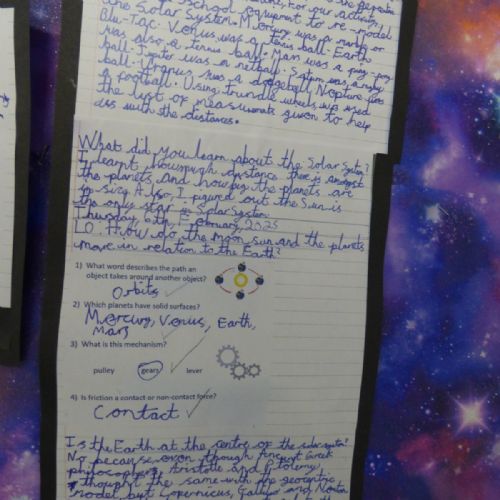 school equipment to re-model
the Solar System. Mercury was a marble or
Blu-Tac. Venus was a tennis ball. Earth
was also a tennis ball. Mars was a ping-pong
ball. Jupiter was a netball. Saturn was a rugby
ball. Uranus was a dodgeball. Neptune was
a football. Using trundle wheels, we used
the list of given to help
us with the distances.
What did you learn about the Solar System?
I learnt how much distance there is amongst
the planets and how big the planets are
in size. Also, I figured out the Sun is
the only star in Solar System
Thursday, 6th, February, 2025
LO: How do the moon sun and the planets
move in relation to the Earth?
1) What word describes the path an
object takes around another object?
Orbits
2) Which planets have solid surfaces?
Mercury, Venus, Earth,
Mars
3) What is this mechanism?
pulley gears lever
4) Is friction a contact or non-contact force?
Contact
Is the Earth at the centre of the solar system?
No because even though Ancient Greek
philosophers Aristotle and Ptolemy
thought the same with the geocentric
model, but Copernicus, and